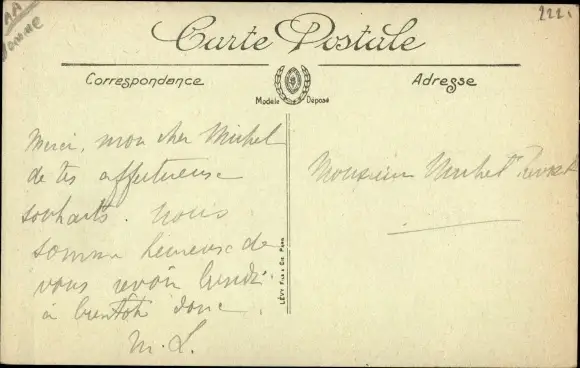 AA
Somme
222.
Carte Postale
Correspondance
Adresse
Modèle Déposé
Merci, mon cher Michel
de tes affectueuse
souhaits. nous
somme heureuse de
vous revoir lundi.
à bientôt donc
M. L.
Monsieur Michel
LÉVY Fils & Cie Paris